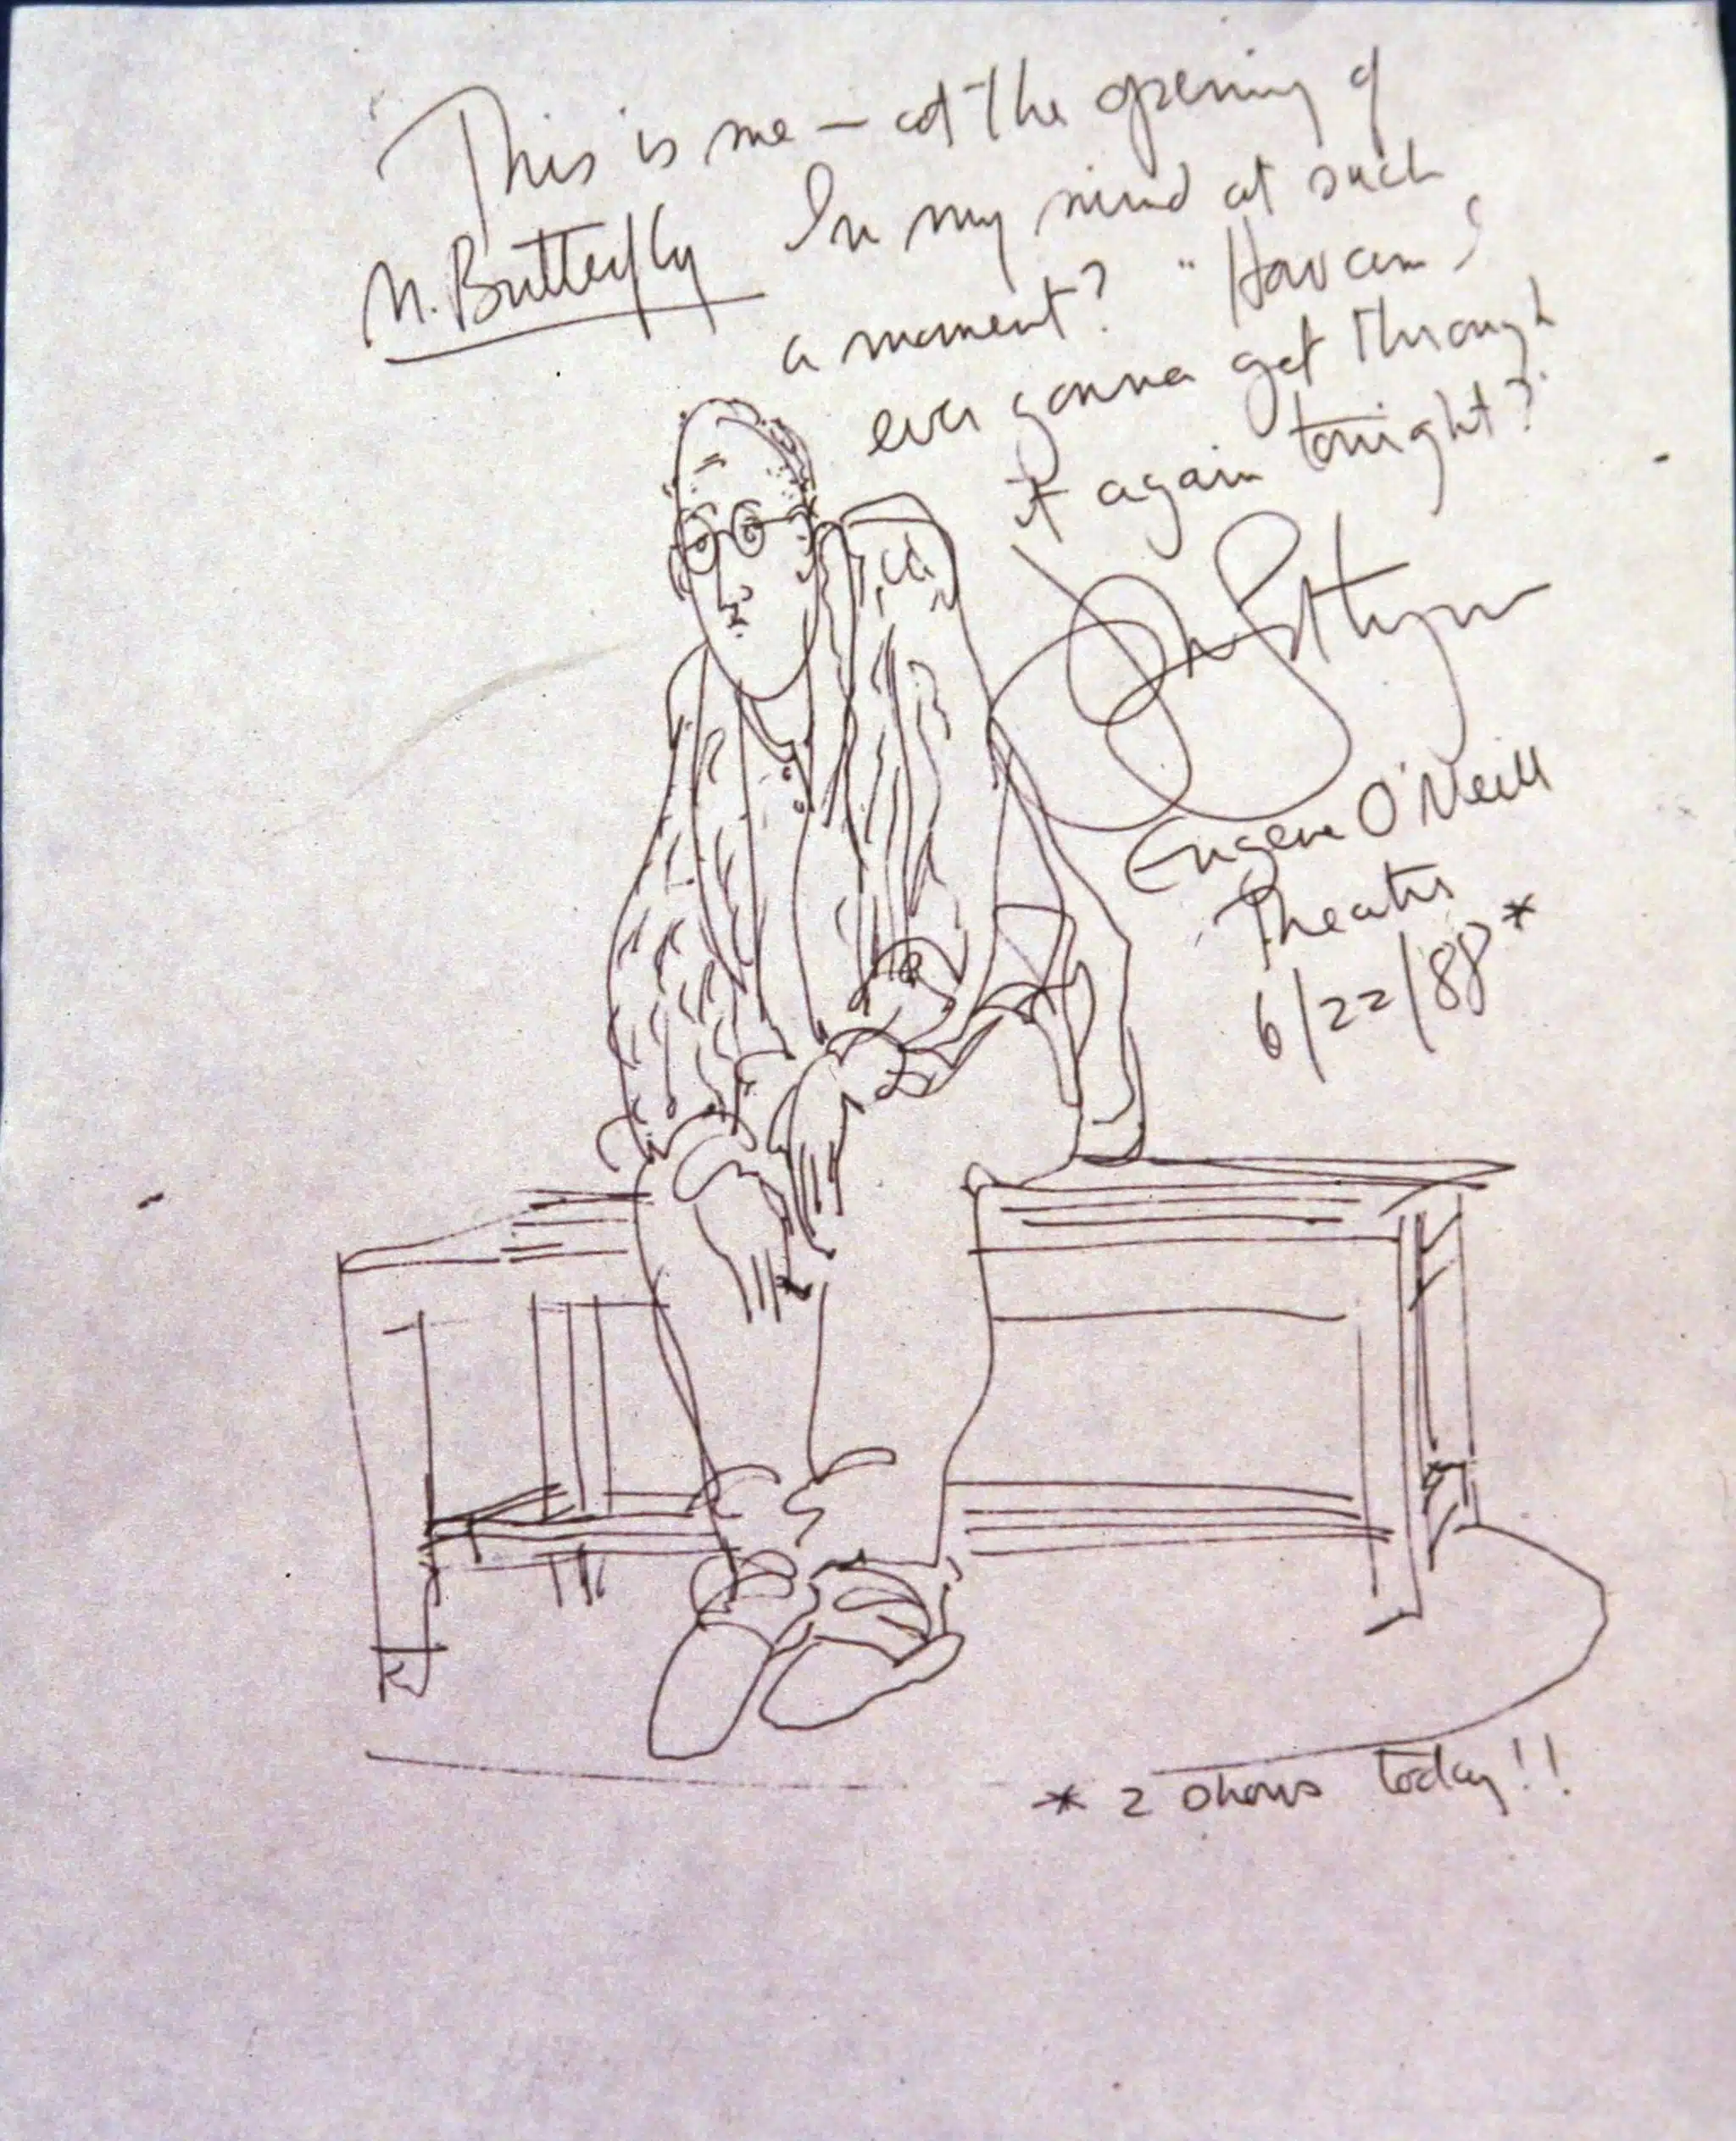 This is me — at the opening of
M. Butterfly In my mind at such
a moment? "How am I
ever gonna get through
it again tonight?"
Eugene O'Neill
Theatre
6/22/88*
* 2 shows today!!